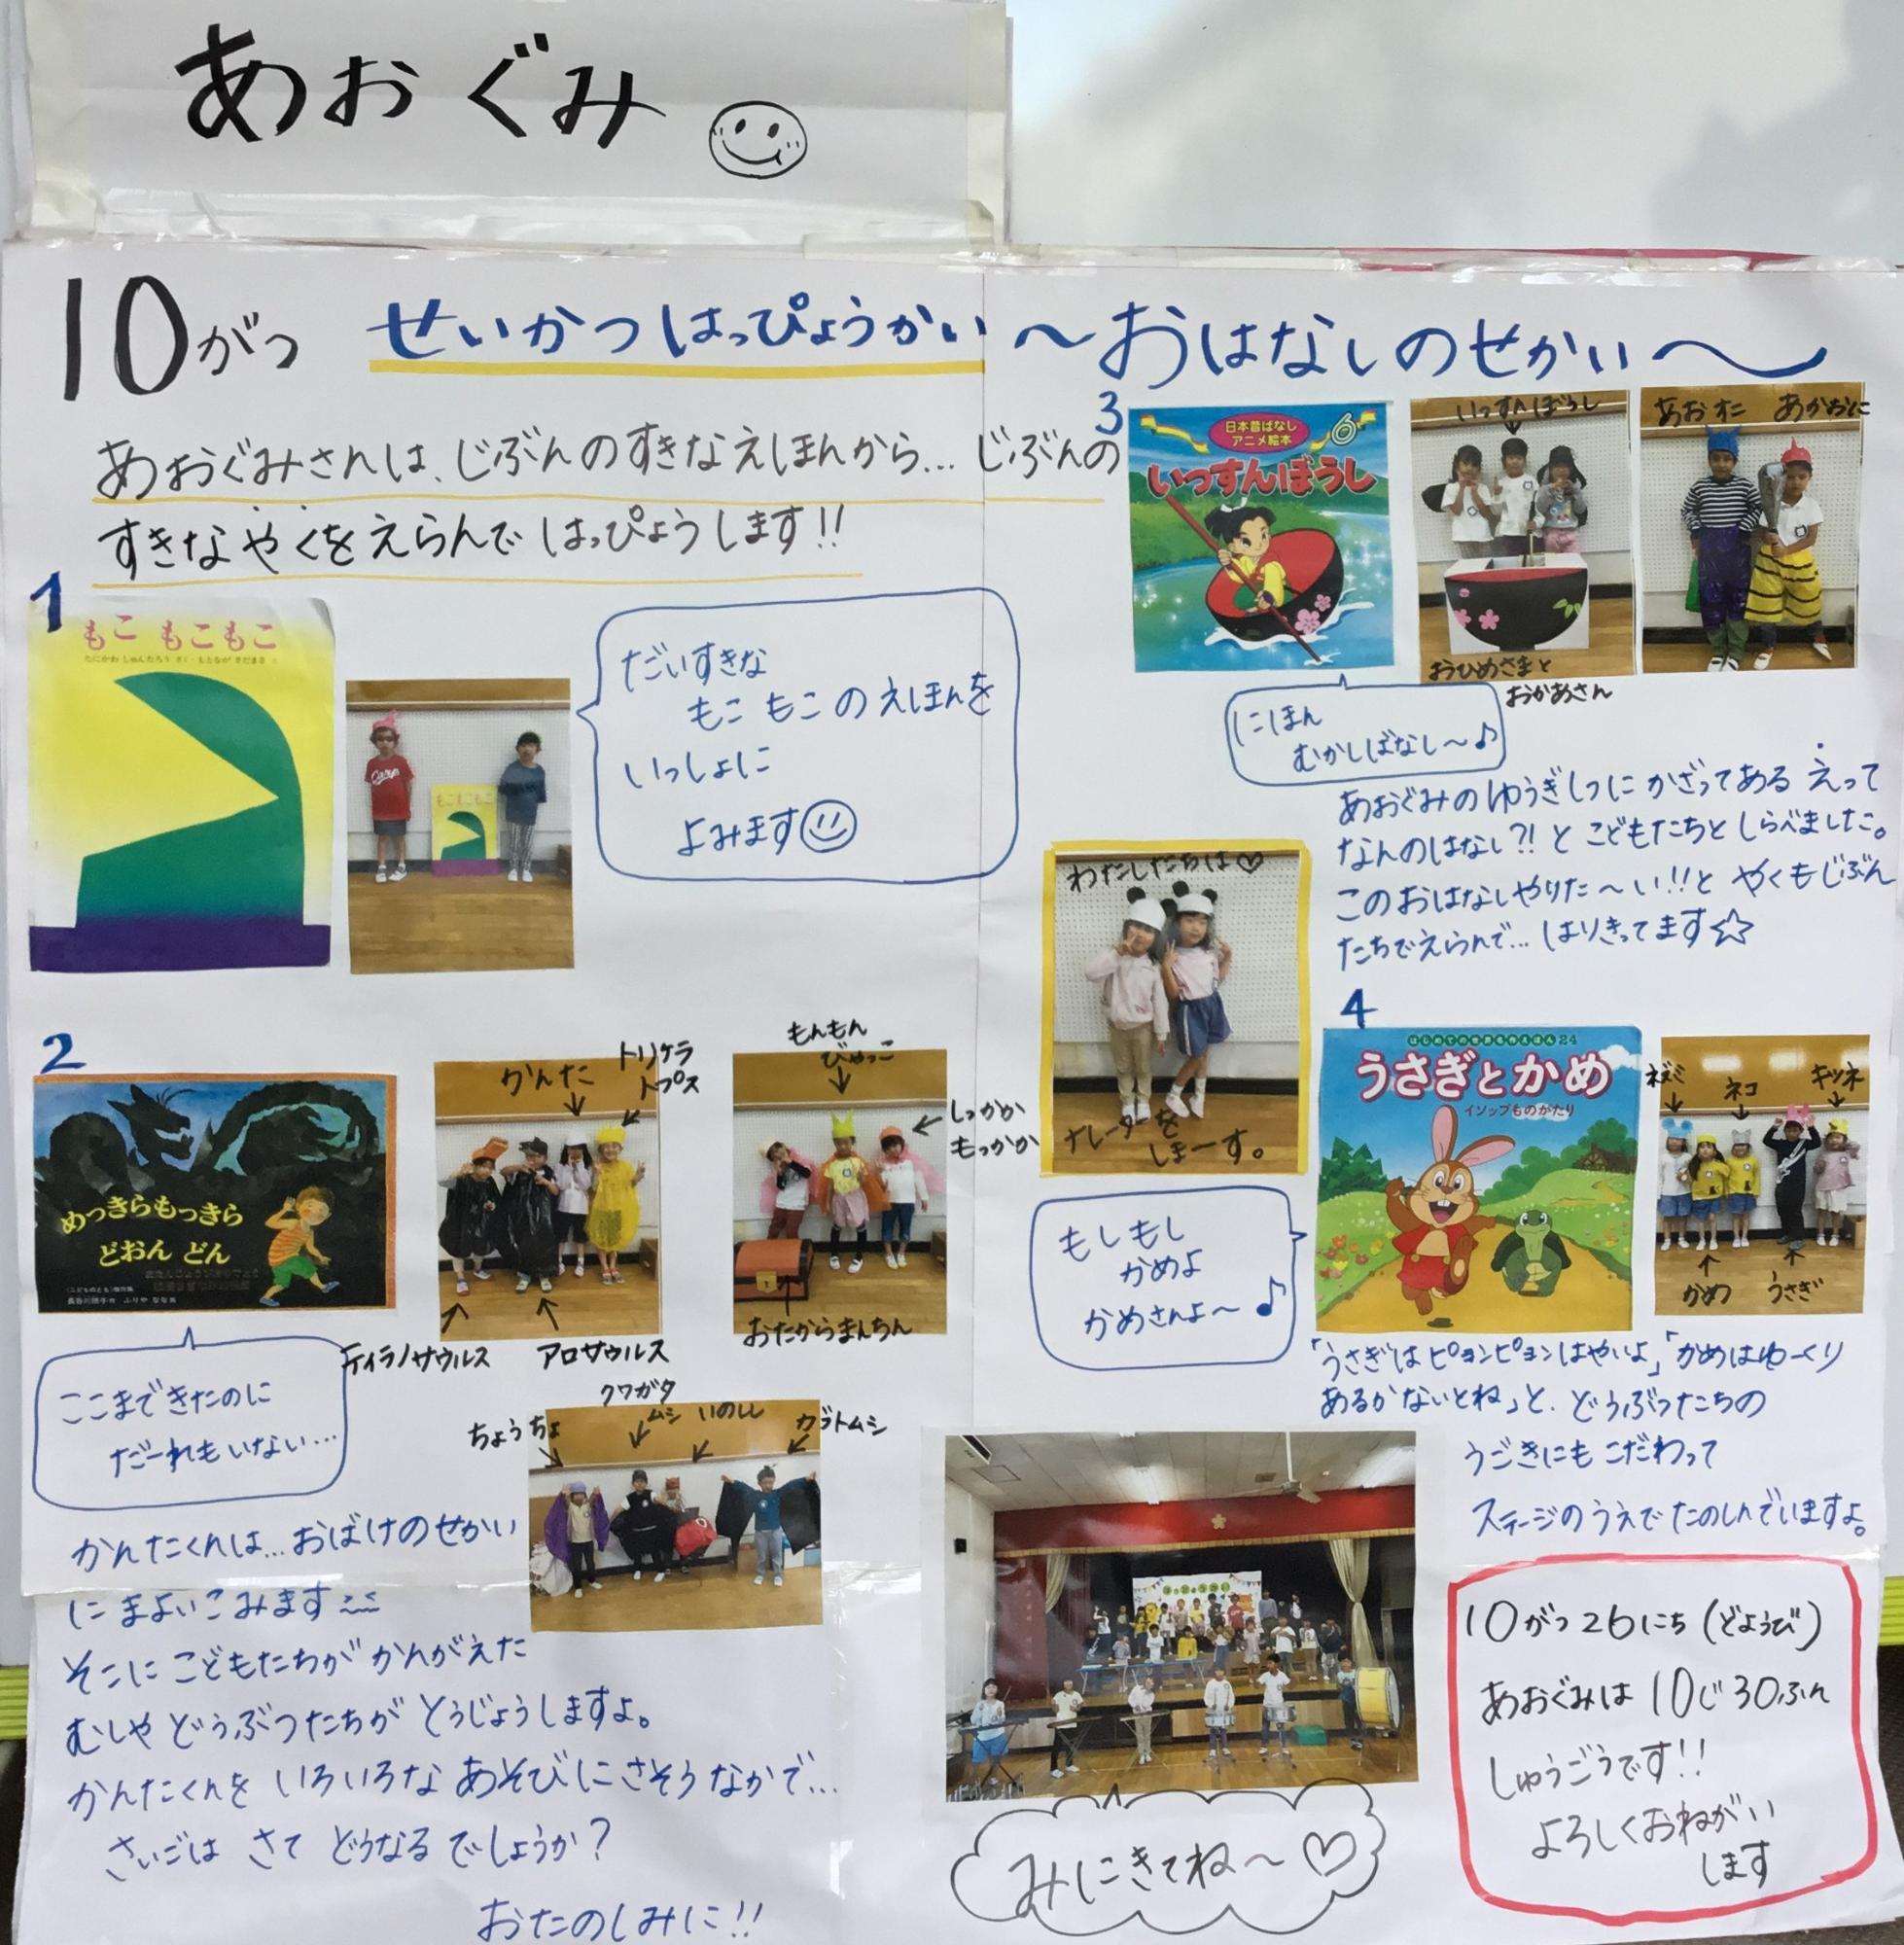 あおぐみ
10がつ せいかつはっぴょうかい 〜おはなしのせかい〜
あおぐみさんは、じぶんのすきなえほんから… じぶんの
すきなやくをえらんで はっぴょうします!!
1
もこ もこもこ
たにかわ しゅんたろう さく・もとなが さだまさ え
もこもこもこ
だいすきな
もこ もこ の えほんを
いっしょに
よみます
2
めっきらもっきら
どおん どん
長谷川摂子 作 ふりや なな 画
かんた
トリケラ
トプス
ティラノサウルス
アロサウルス
もんもん
びゃっこ
しっかか
もっかか
おたからまんちん
ここまできたのに
だーれもいない…
ちょうちょ
クワガタ
ムシ
いのしし
カブトムシ
かんたくんは…おばけのせかい
にまよいこみます
そこに こどもたちが かんがえた
むしや どうぶつたちが とうじょうしますよ。
かんたくんを いろいろな あそびにさそうなかで…
さいごは さて どうなるでしょうか?
おたのしみに!!
3
日本昔ばなし
アニメ絵本
6
いっすんぼうし
いっすんぼうし
おひめさまと
おかあさん
あおおに
あかおに
にほん
むかしばなし〜♪
あおぐみのゆうぎしつに かざってある えって
なんのはなし?!と こどもたちと しらべました。
このおはなしやりた〜い!!と やくもじぶん
たちでえらんで… はりきってます☆
わたしたちは♡
ナレーターを
しまーす。
4
はじめての世界名作えほん 24
うさぎとかめ
イソップものがたり
ネズミ
ネコ
キツネ
かめ
うさぎ
もしもし
かめよ
かめさんよ〜♪
「うさぎはピョンピョンはやいよ」「かめはゆっくり
あるかないとね」と、どうぶつたちの
うごきにもこだわって
ステージのうえでたのしんでいますよ。
みにきてね〜♡
10がつ26にち(どようび)
あおぐみは 10じ30ふん
しゅうごうです!!
よろしくおねがい
します